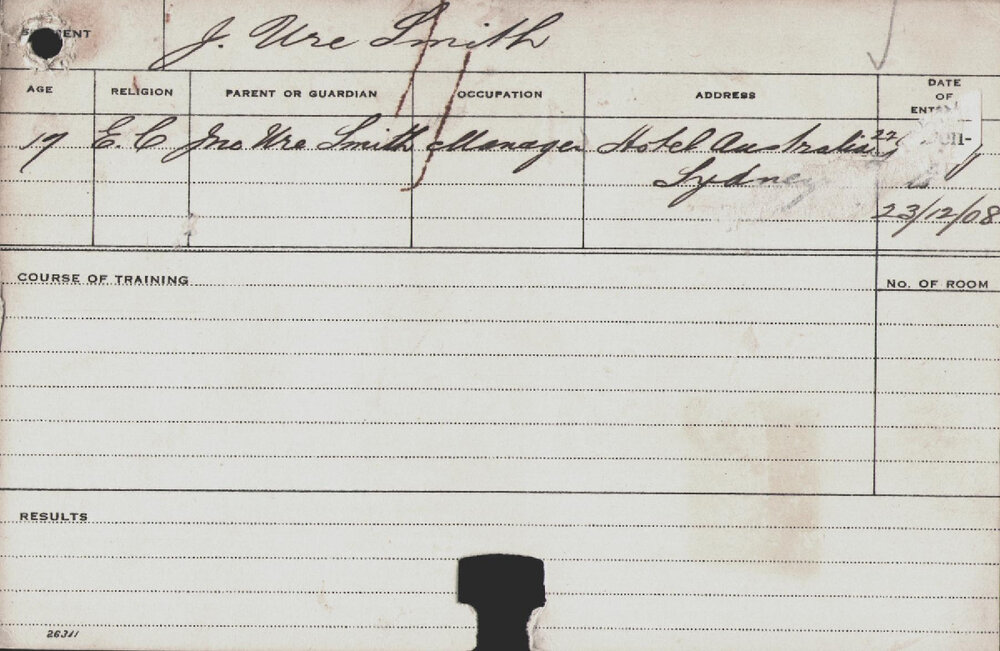 J. Ure Smith
AGE RELIGION PARENT OR GUARDIAN OCCUPATION ADDRESS DATE OF
17 E.C Jno Ure Smith Manager Hotel Australia 22/
Sydney
23/12/08
COURSE OF TRAINING No. OF ROOM
RESULTS
26311